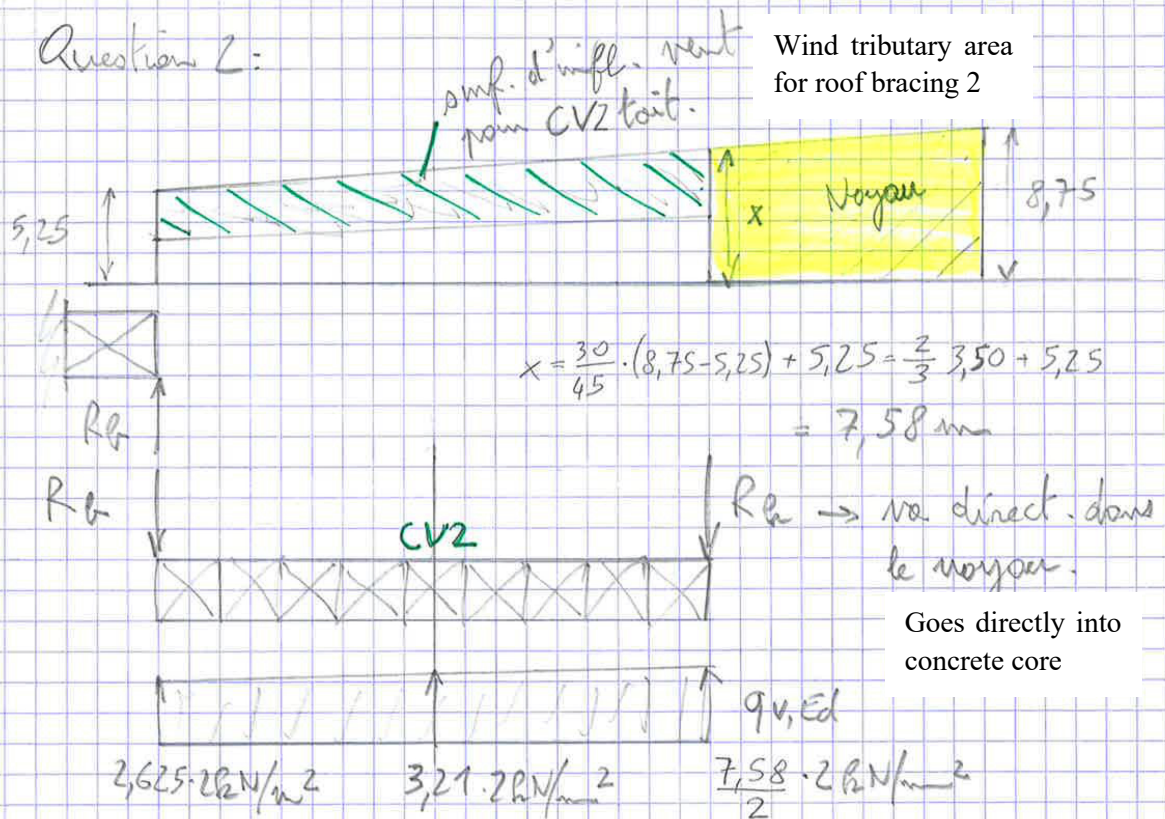 Question 2:
surf. d'infl. vent
pour CV2 toit.
Wind tributary area
for roof bracing 2
5,25
x
Noyau
8,75
x = 30/45 · (8,75-5,25) + 5,25 = 2/3 3,50 + 5,25
= 7,58 m
R
R
CV2
R → va direct. dans
le noyau.
Goes directly into
concrete core
qv,Ed
2,625·2kN/m² 3,21·2kN/m² 7,58/2 · 2kN/m²